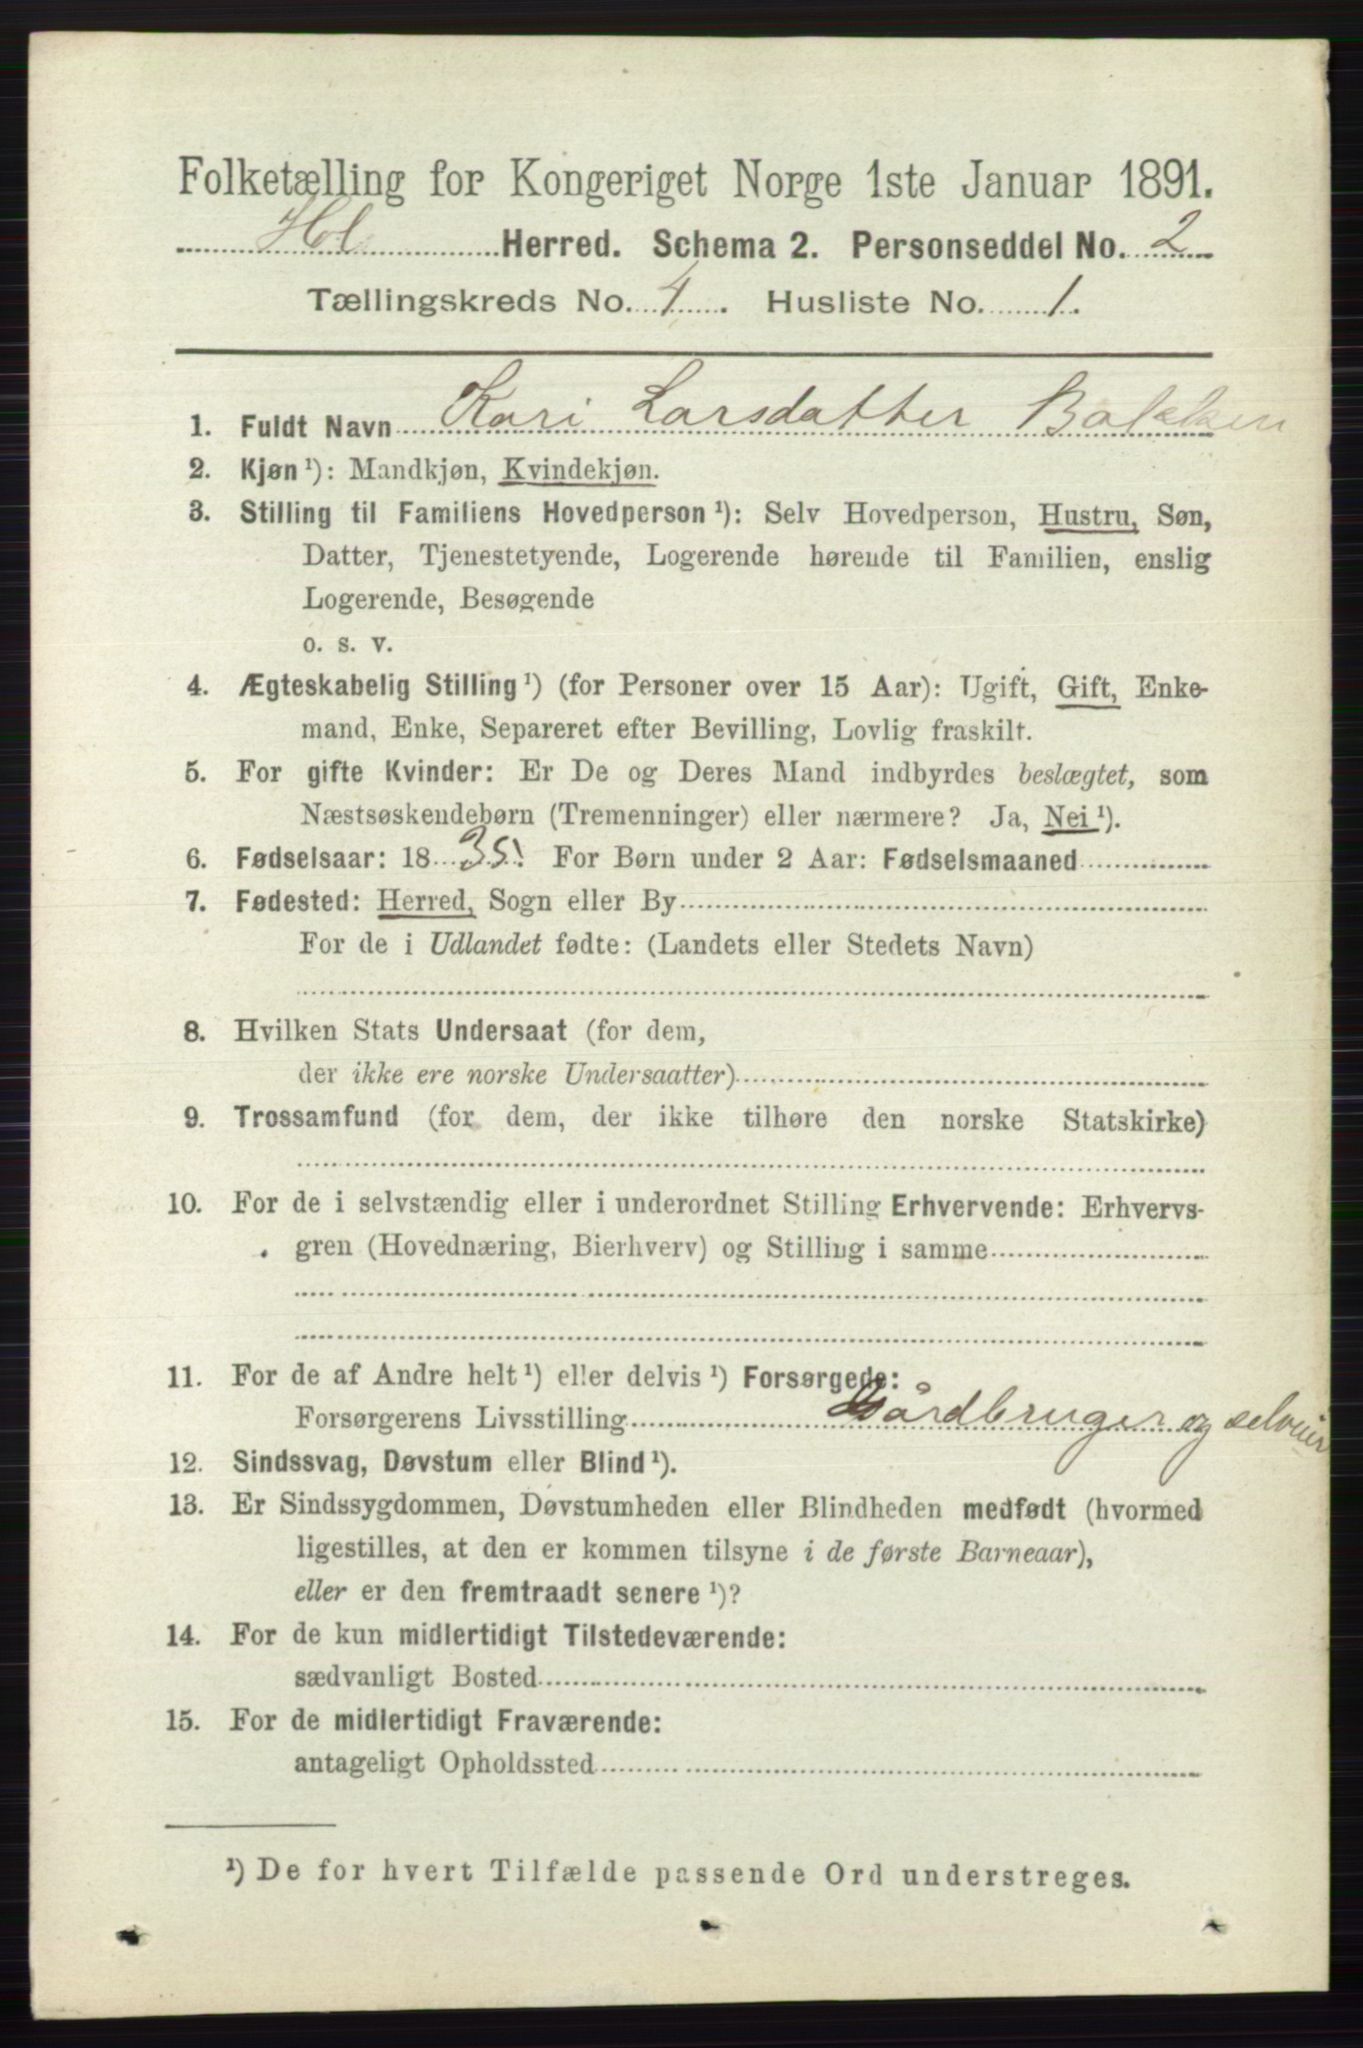 Folketælling for Kongeriget Norge 1ste Januar 1891.
Hol Herred. Schema 2. Personseddel No. 2
Tællingskreds No. 4. Husliste No. 1.
1. Fuldt Navn Kari Larsdatter Bakken
2. Kjøn ¹): Mandkjøn, Kvindekjøn.
3. Stilling til Familiens Hovedperson ¹): Selv Hovedperson, Hustru, Søn,
Datter, Tjenestetyende, Logerende hørende til Familien, enslig
Logerende, Besøgende
o. s. v.
4. Ægteskabelig Stilling ¹) (for Personer over 15 Aar): Ugift, Gift, Enke-
mand, Enke, Separeret efter Bevilling, Lovlig fraskilt.
5. For gifte Kvinder: Er De og Deres Mand indbyrdes beslægtet, som
Næstsøskendebørn (Tremenninger) eller nærmere? Ja, Nei ¹).
6. Fødselsaar: 1835. For Børn under 2 Aar: Fødselsmaaned
7. Fødested: Herred, Sogn eller By
For de i Udlandet fødte: (Landets eller Stedets Navn)
8. Hvilken Stats Undersaat (for dem,
der ikke ere norske Undersaatter)
9. Trossamfund (for dem, der ikke tilhøre den norske Statskirke)
10. For de i selvstændig eller i underordnet Stilling Erhvervende: Erhvervs-
gren (Hovednæring, Bierhverv) og Stilling i samme
11. For de af Andre helt ¹) eller delvis ¹) Forsørgede:
Forsørgerens Livsstilling Gårdbruger og selveier
12. Sindssvag, Døvstum eller Blind ¹).
13. Er Sindssygdommen, Døvstumheden eller Blindheden medfødt (hvormed
ligestilles, at den er kommen tilsyne i de første Barneaar),
eller er den fremtraadt senere ¹)?
14. For de kun midlertidigt Tilstedeværende:
sædvanligt Bosted
15. For de midlertidigt Fraværende:
antageligt Opholdssted
¹) De for hvert Tilfælde passende Ord understreges.